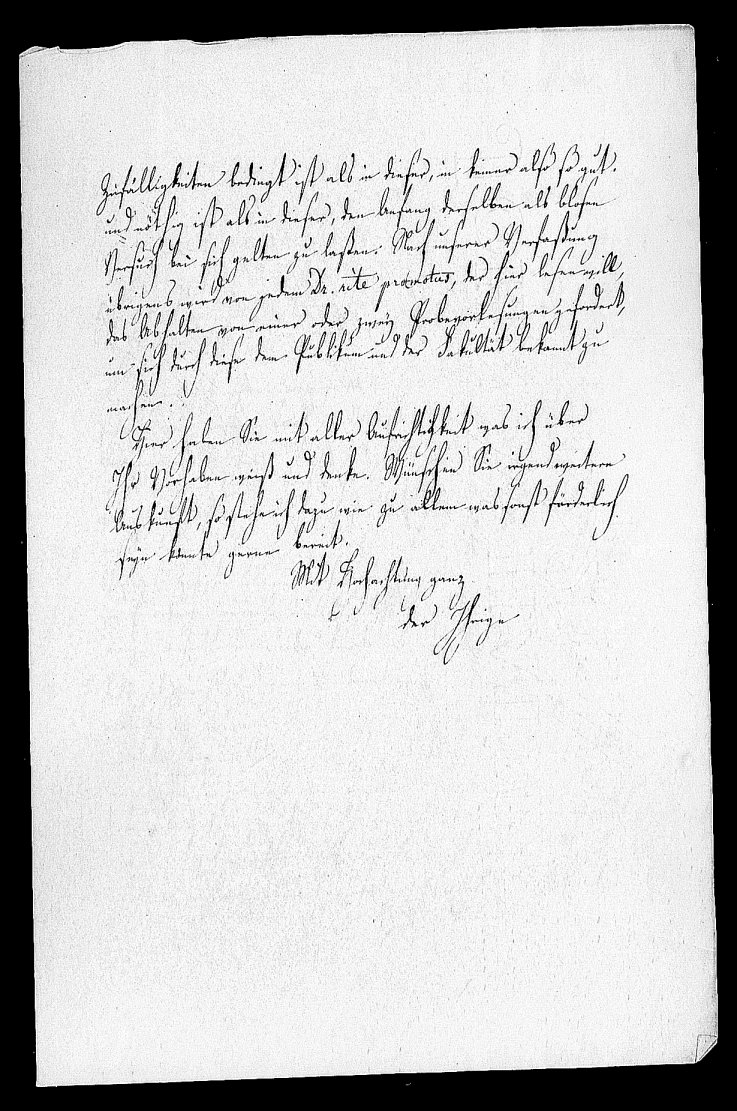 Zufälligkeiten bedingt ist als in dieser, in keiner also so gut.
und nöthig ist als in dieser, den Anfang derselben als blosen
Versuch bei sich gelten zu lassen. Nach unserer Verfassung
übrigens wird von jedem Dr. rite promotus, der hier lesen will,
das Abhalten von einer oder zwey Probevorlesungen gefordert,
um sich durch diese dem Publikum und der Fakultät bekannt zu
machen.
Hier haben Sie mit aller Aufrichtigkeit was ich über
Ihr Vorhaben weiß und denke. Wünschen Sie irgend weitere
Auskunft, so stehe ich dazu wie zu allem was sonst förderlich
seyn könnte gerne bereit.
Mit Hochachtung ganz
der Ihrige